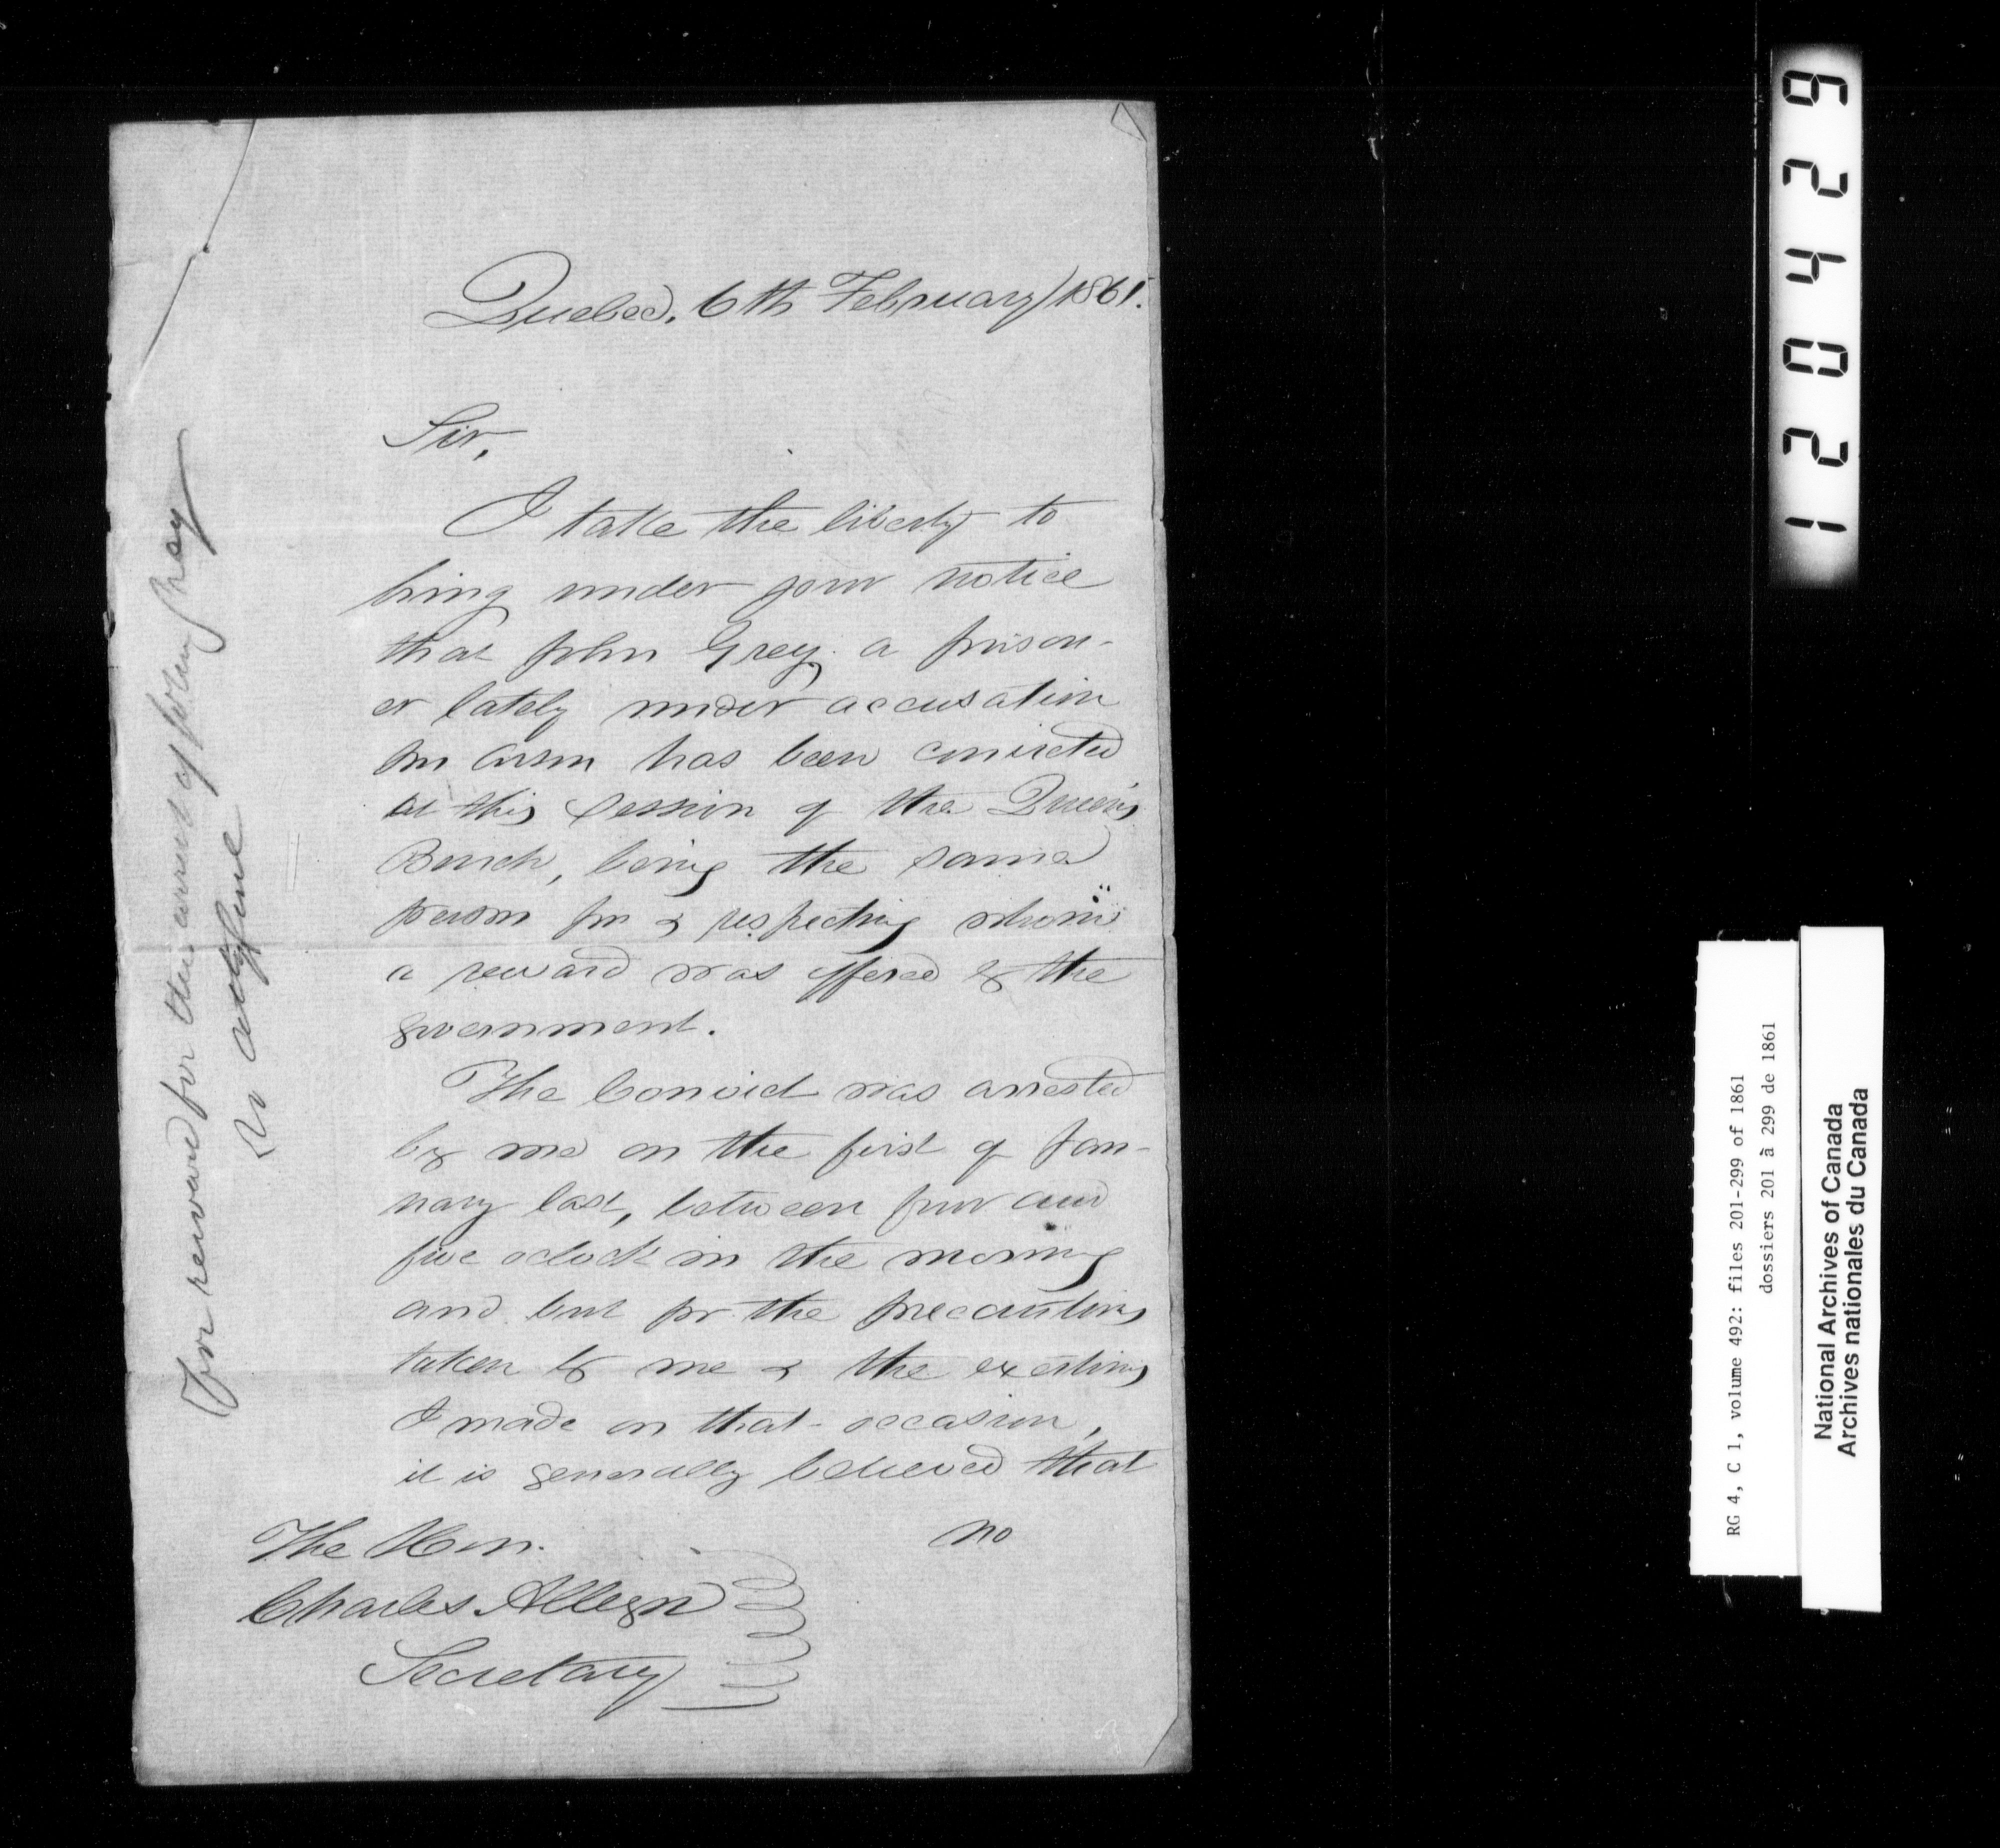 Quebec, 6th February/1861.
Sir,
I take the liberty to
bring under your notice
that John Grey, a prison-
er lately under accusation
for arson has been convicted
at this session of the Queen's
Bench, being the same
person for & respecting whom
a reward was offered by the
government.
The Convict was arrested
by me on the first of Jan-
uary last, between four and
five oclock in the morning
and but for the precautions
taken by me & the exertions
I made on that occasion,
it is generally believed that
no
The Hon.
Charles Alleyn
Secretary
For reward for the arrest of John Gray
RG 4, C 1, volume 492: files 201-299 of 1861
dossiers 201 à 299 de 1861
National Archives of Canada
Archives nationales du Canada
120429